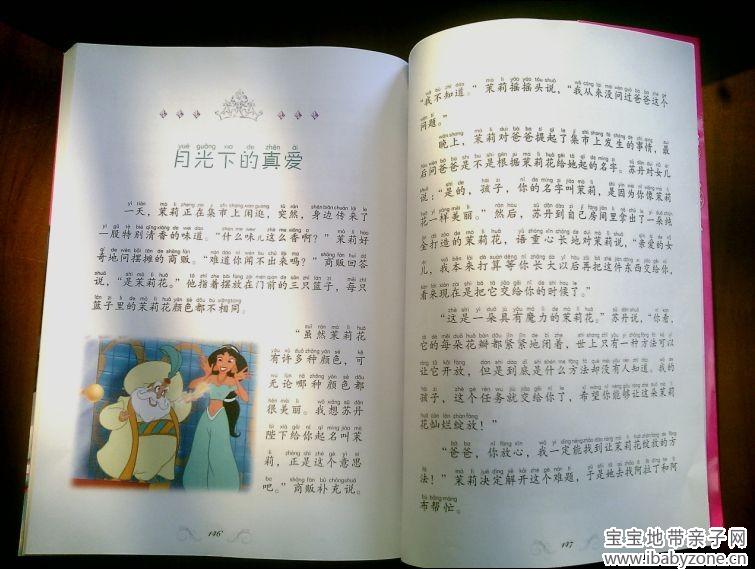 yuè guāng xià de zhēn ài
月光下的真爱
一天，茉莉正在集市上闲逛，突然，身边传来了
一股特别清香的味道。“什么味儿这么香啊？”茉莉好
奇地问摆摊的商贩。“难道你闻不出来吗？”商贩回答
说，“是茉莉花。”他指着摆放在门前的三只篮子，每只
篮子里的茉莉花颜色都不相同。
“虽然茉莉花
有许多种颜色，可
无论哪种颜色都
很美丽。我想苏丹
陛下给你起名叫茉
莉，正是这个意思
吧。”商贩补充说。
146
“我不知道。”茉莉摇摇头说，“我从来没问过爸爸这个
问题。”
晚上，茉莉对爸爸提起了集市上发生的事情，最
后问爸爸是不是根据茉莉花给她起的名字。苏丹对女儿
说：“是的，孩子，你的名字叫茉莉，是因为你像茉莉
花一样美丽。”然后，苏丹到自己房间里拿出了一朵纯
金打造的茉莉花，语重心长地对茉莉说，“亲爱的女
儿，我本来打算等你长大以后再把这件东西交给你，
看来现在是把它交给你的时候了。”
“这是一朵具有魔力的茉莉花，”苏丹说，“你看，
它的每朵花瓣都紧紧地闭着，世上只有一种方法可以
让它开放，但是到底是什么方法却没有人知道。我的
孩子，这个任务就交给你了，希望你能够让这朵茉莉
花灿烂绽放！”
“爸爸，你放心，我一定能找到让茉莉花绽放的方
法！”茉莉决定解开这个难题，于是她去找阿拉丁和阿
布帮忙。
147
宝宝地带亲子网
www.ibabyzone.cn